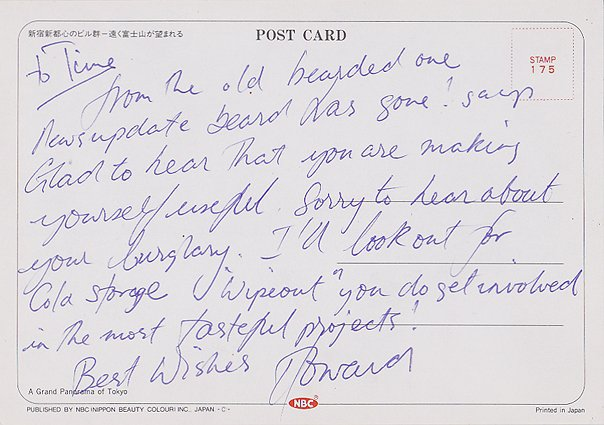 新宿新都心のビル群－遠く富士山が望まれる
POST CARD
STAMP
175
to Time
from the old bearded one
Newsupdate beard has gone! says
Glad to hear that you are making
yourself useful. Sorry to hear about
your burglary. I'll look out for
Cold storage "Wipeout" you do get involved
in the most tasteful projects!
Best Wishes Howard
A Grand Panorama of Tokyo
NBC
PUBLISHED BY NBC (NIPPON BEAUTY COLOUR) INC., JAPAN -C-
Printed in Japan